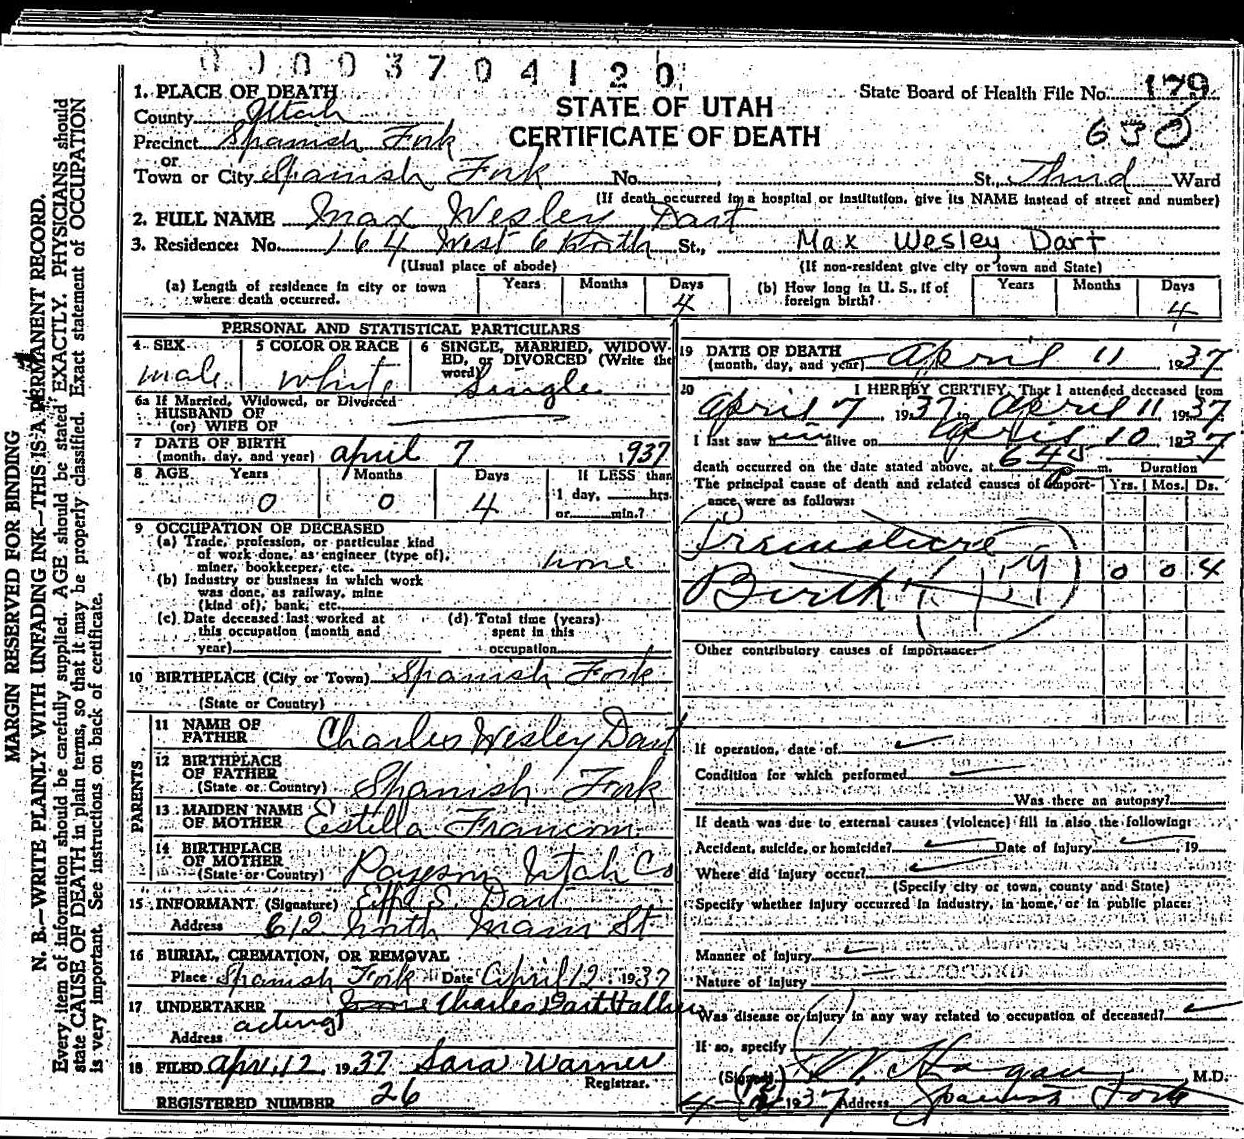 0 0 0 0 3 7 0 4 1 2 0
1. PLACE OF DEATH
County Utah
Precinct Spanish Fork
or
Town or City Spanish Fork No. , St., Third Ward
STATE OF UTAH
CERTIFICATE OF DEATH
State Board of Health File No. 179
630
(If death occurred in a hospital or institution, give its NAME instead of street and number)
2. FULL NAME Max Wesley Dart
3. Residence: No. 164 West 6 North St., Max Wesley Dart
(Usual place of abode) (If non-resident give city or town and State)
(a) Length of residence in city or town where death occurred. Years Months Days 4
(b) How long in U. S., if of foreign birth? Years Months Days 4
PERSONAL AND STATISTICAL PARTICULARS
4 SEX male
5 COLOR OR RACE white
6 SINGLE, MARRIED, WIDOWED, or DIVORCED (Write the word) Single
6a If Married, Widowed, or Divorced
HUSBAND OF
(or) WIFE OF
7 DATE OF BIRTH
(month, day, and year) april 7 1937
8 AGE Years 0 Months 0 Days 4 If LESS than
1 day, hrs.
or min.?
9 OCCUPATION OF DECEASED
(a) Trade, profession, or particular kind
of work done, as engineer (type of),
miner, bookkeeper, etc. none
(b) Industry or business in which work
was done, as railway, mine
(kind of), bank, etc.
(c) Date deceased last worked at
this occupation (month and
year)
(d) Total time (years)
spent in this
occupation
10 BIRTHPLACE (City or Town) Spanish Fork
(State or Country)
PARENTS
11 NAME OF
FATHER Charles Wesley Dart
12 BIRTHPLACE
OF FATHER
(State or Country) Spanish Fork
13 MAIDEN NAME
OF MOTHER Estella Francom
14 BIRTHPLACE
OF MOTHER
(State or Country) Payson Utah Co
15 INFORMANT (Signature) Effa S. Dart
Address 612 North Main St
16 BURIAL, CREMATION, OR REMOVAL
Place Spanish Fork Date April 12 1937
17 UNDERTAKER Charles Dart Father
acting
Address
18 FILED Apr. 12 1937 Sara Warner
Registrar.
REGISTERED NUMBER 26
19 DATE OF DEATH
(month, day, and year) April 11 1937
20 I HEREBY CERTIFY, That I attended deceased from
April 7, 1937 to April 11 1937
I last saw him alive on April 10 1937
death occurred on the date stated above, at 645 P m. Duration
The principal cause of death and related causes of importance were as follows: Yrs. Mos. Ds.
Premature
Birth 159 0 0 4
Other contributory causes of importance:
If operation, date of
Condition for which performed
Was there an autopsy?
If death was due to external causes (violence) fill in also the following:
Accident, suicide, or homicide? Date of injury , 19
Where did injury occur?
(Specify city or town, county and State)
Specify whether injury occurred in industry, in home, or in public place:
Manner of injury
Nature of injury
Was disease or injury in any way related to occupation of deceased?
If so, specify
(Signed) Hagan M.D.
4-12 1937 Address Spanish Fork
MARGIN RESERVED FOR BINDING
N. B.—WRITE PLAINLY WITH UNFADING INK—THIS IS A PERMANENT RECORD.
Every item of information should be carefully supplied. AGE should be stated EXACTLY. PHYSICIANS should
state CAUSE OF DEATH in plain terms, so that it may be properly classified. Exact statement of OCCUPATION
is very important. See instructions on back of certificate.